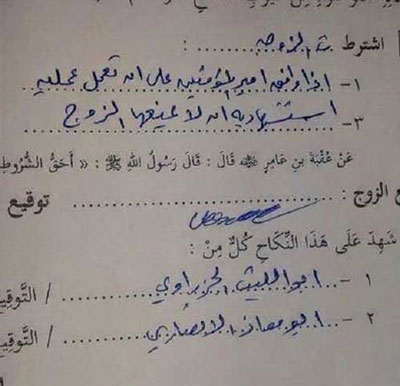 اشترطت الزوجة :
١- اذا وافق امير المؤمنين على ان تعمل عملية
٣- استشهادية ان لا يمنعها الزوج
عَنْ عُقْبَةَ بنِ عَامِرٍ ﷺ قَالَ : قَالَ رَسُولُ اللهِ ﷺ : « أَحَقُّ الشُّرُوطِ
ع الزوج : توقيع
شَهِدَ عَلَى هَذَا النِّكَاحِ كُلٌّ مِنْ :
١ - ابو الليث الجزراوي / التَّوقِيعُ
٢ - ابو معاذ الانصاري / التَّوقِيعُ